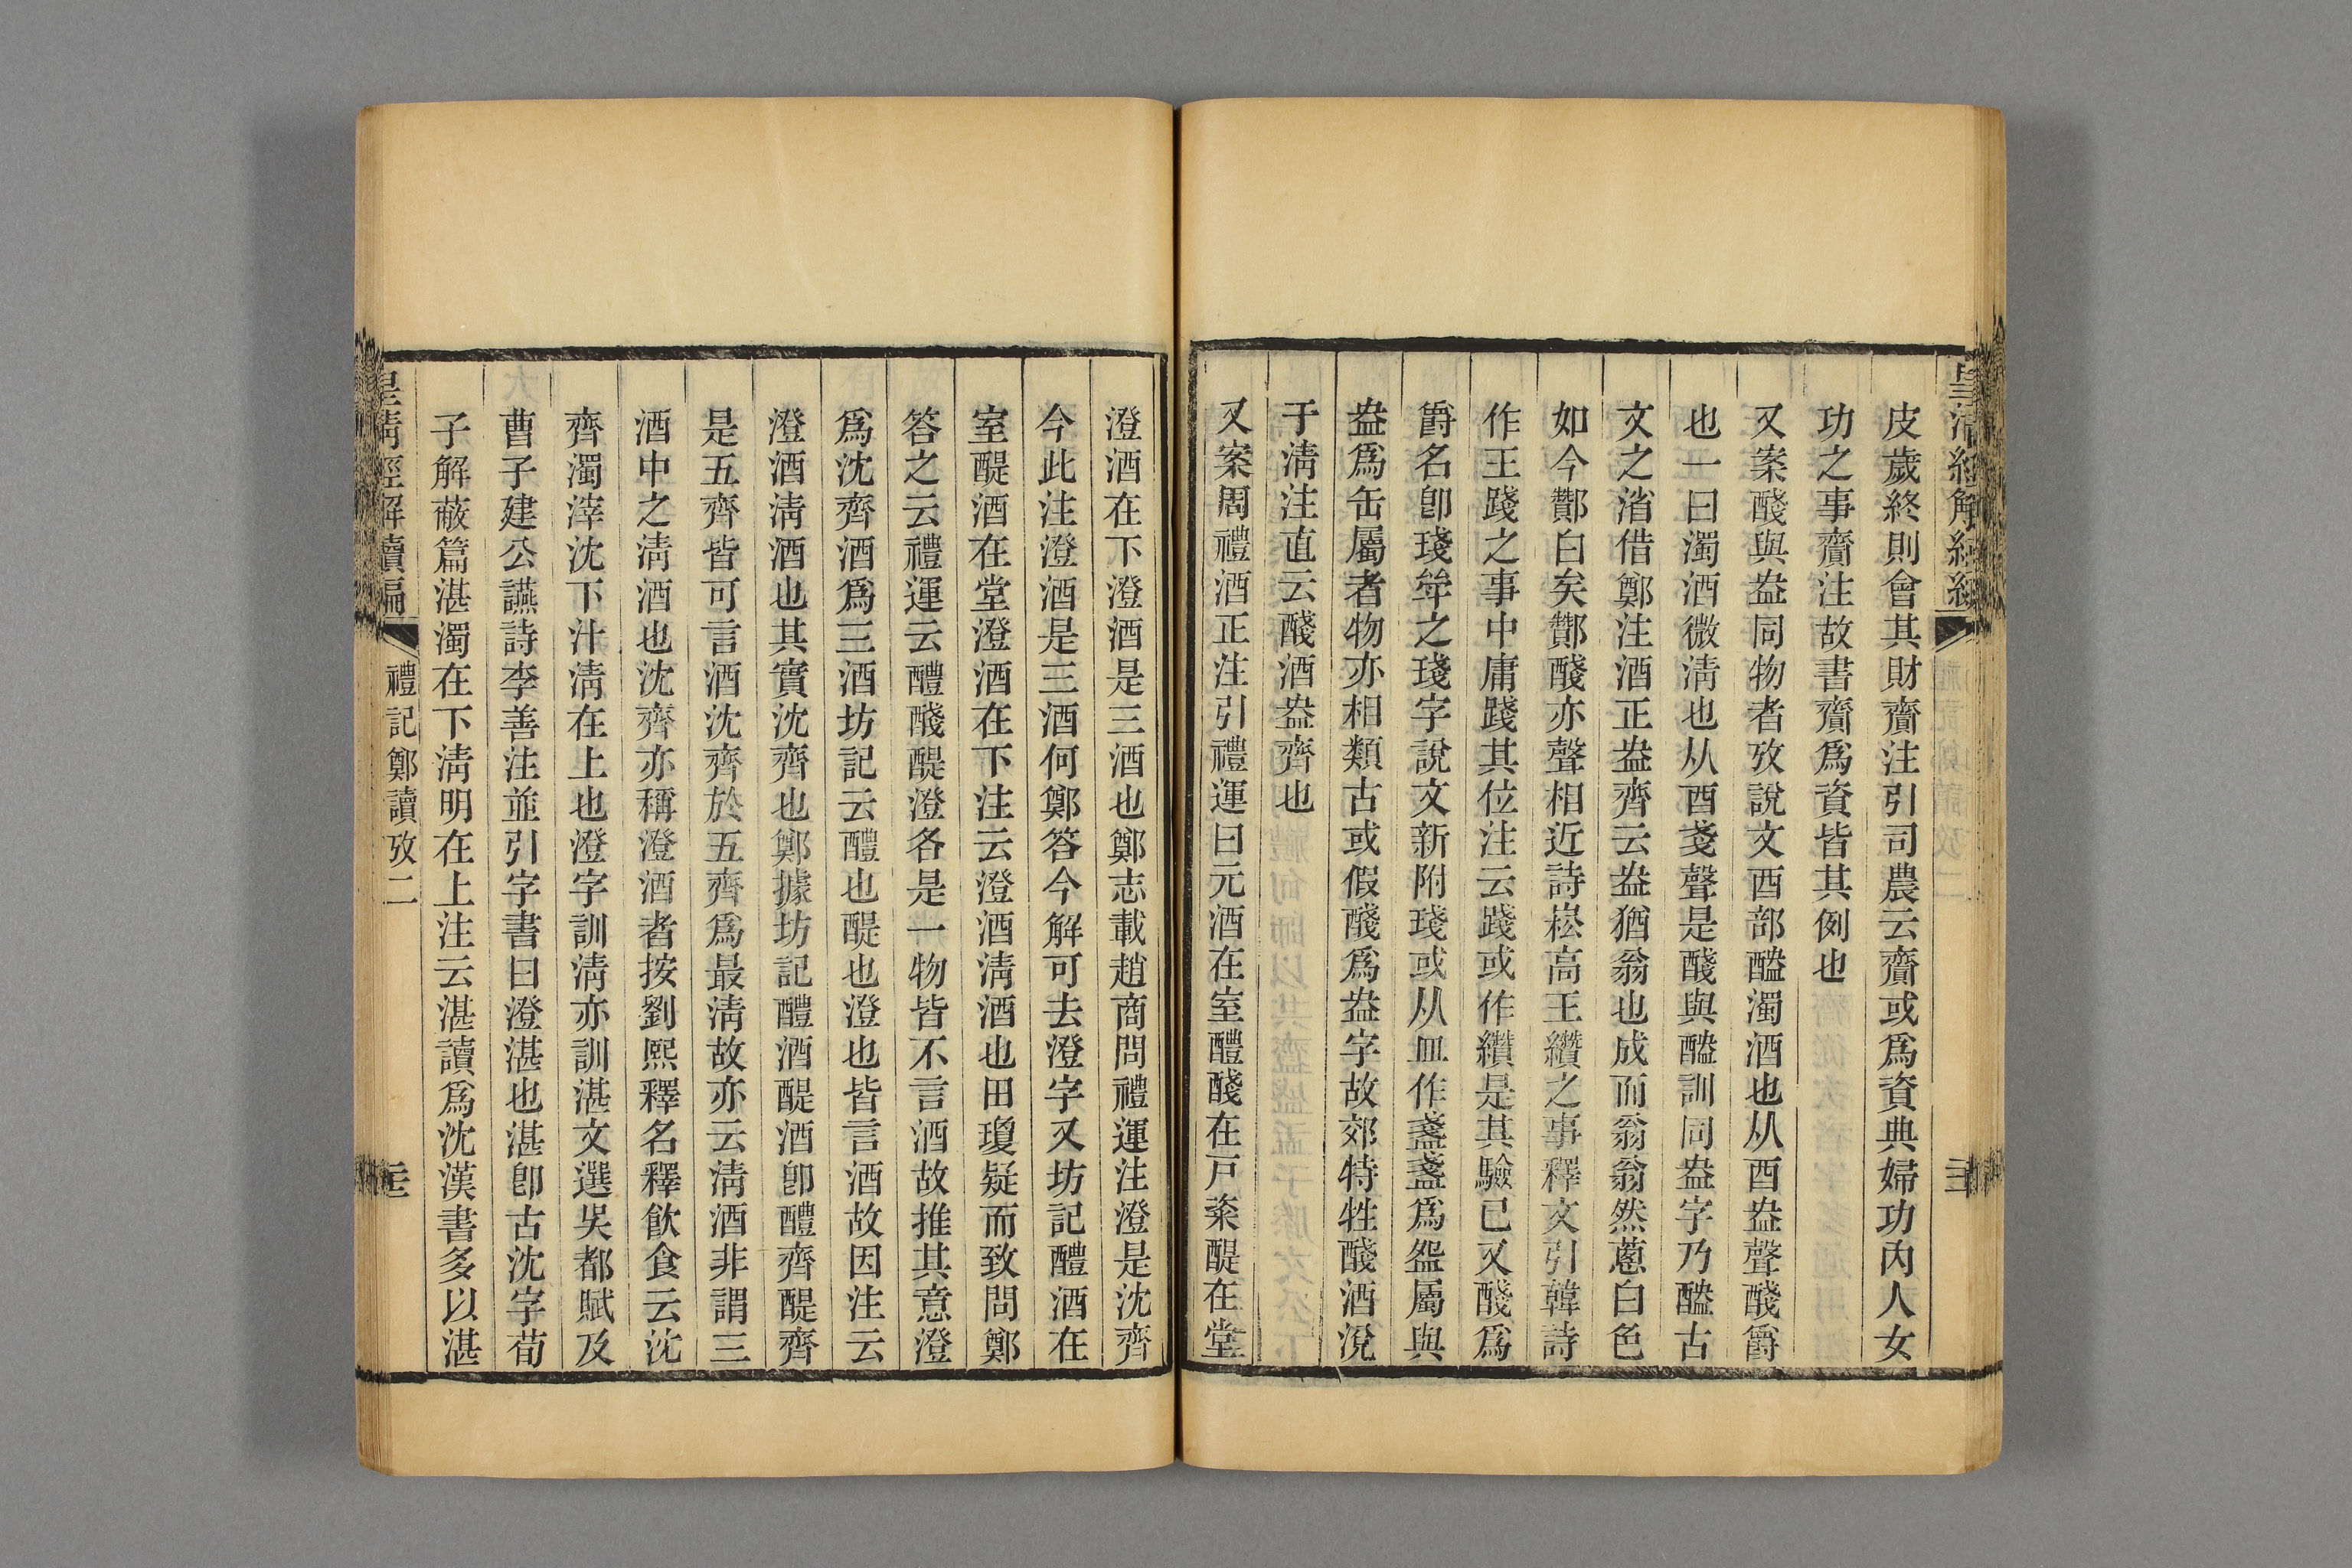 皮歲終則會其財齎注引司農云齎或爲資典婦功內人女
功之事齎注故書齎爲資皆其例也
又案醆與盎同物者攷說文酉部醠濁酒也从酉盎聲醆爵
也一曰濁酒微淸也从酉戔聲是醆與醠訓同盎字乃醠古
文之渻借鄭注酒正盎齊云盎猶翁也成而翁翁然蔥白色
如今酇白矣酇醆亦聲相近詩崧高王纘之事釋文引韓詩
作王踐之事中庸踐其位注云踐或作纘是其驗已又醆爲
爵名卽琖斚之琖字說文新附琖或从皿作盞盞爲盌屬與
盎爲缶屬者物亦相類古或假醆爲盎字故郊特牲醆酒涗
于淸注直云醆酒盎齊也
又案周禮酒正注引禮運曰元酒在室醴醆在戸粢醍在堂
澄酒在下澄酒是三酒也鄭志載趙商問禮運注澄是沈齊
今此注澄酒是三酒何鄭答今解可去澄字又坊記醴酒在
室醍酒在堂澄酒在下注云澄酒淸酒也田瓊疑而致問鄭
答之云禮運云醴醆醍澄各是一物皆不言酒故推其意澄
爲沈齊酒爲三酒坊記云醴也醍也澄也皆言酒故因注云
澄酒淸酒也其實沈齊也鄭據坊記醴酒醍酒卽醴齊醍齊
是五齊皆可言酒沈齊於五齊爲最淸故亦云淸酒非謂三
酒中之淸酒也沈齊亦稱澄酒者按劉熙釋名釋飮食云沈
齊濁滓沈下汁淸在上也澄字訓淸亦訓湛文選吳都賦及
曹子建公讌詩李善注並引字書曰澄湛也湛卽古沈字荀
子解蔽篇湛濁在下淸明在上注云湛讀爲沈漢書多以湛
皇淸經解續編
禮記鄭讀攷二